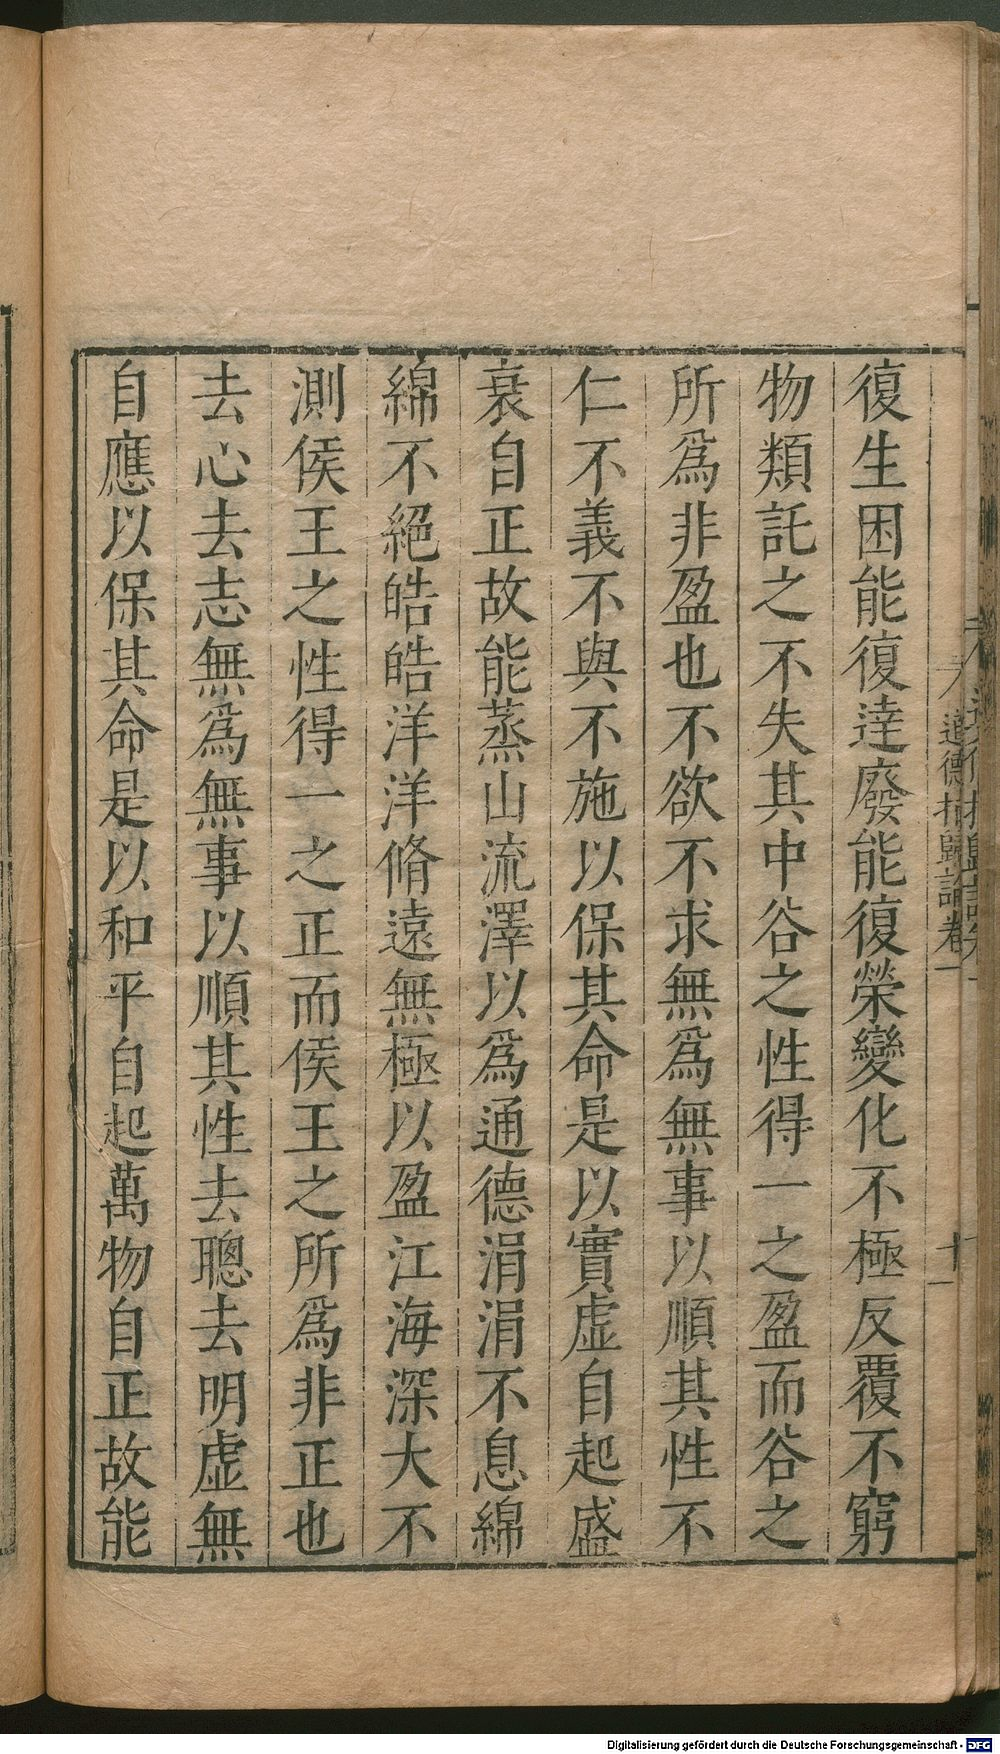 復生困能復達廢能復榮變化不極反覆不窮
物類託之不失其中谷之性得一之盈而谷之
所爲非盈也不欲不求無爲無事以順其性不
仁不義不與不施以保其命是以實虛自起盛
衰自正故能蒸山流澤以爲通德涓涓不息綿
綿不絕皓皓洋洋脩遠無極以盈江海深大不
測侯王之性得一之正而侯王之所爲非正也
去心去志無爲無事以順其性去聰去明虛無
自應以保其命是以和平自起萬物自正故能
道德指歸論卷一
十一
Digitalisierung gefördert durch die Deutsche Forschungsgemeinschaft - DFG